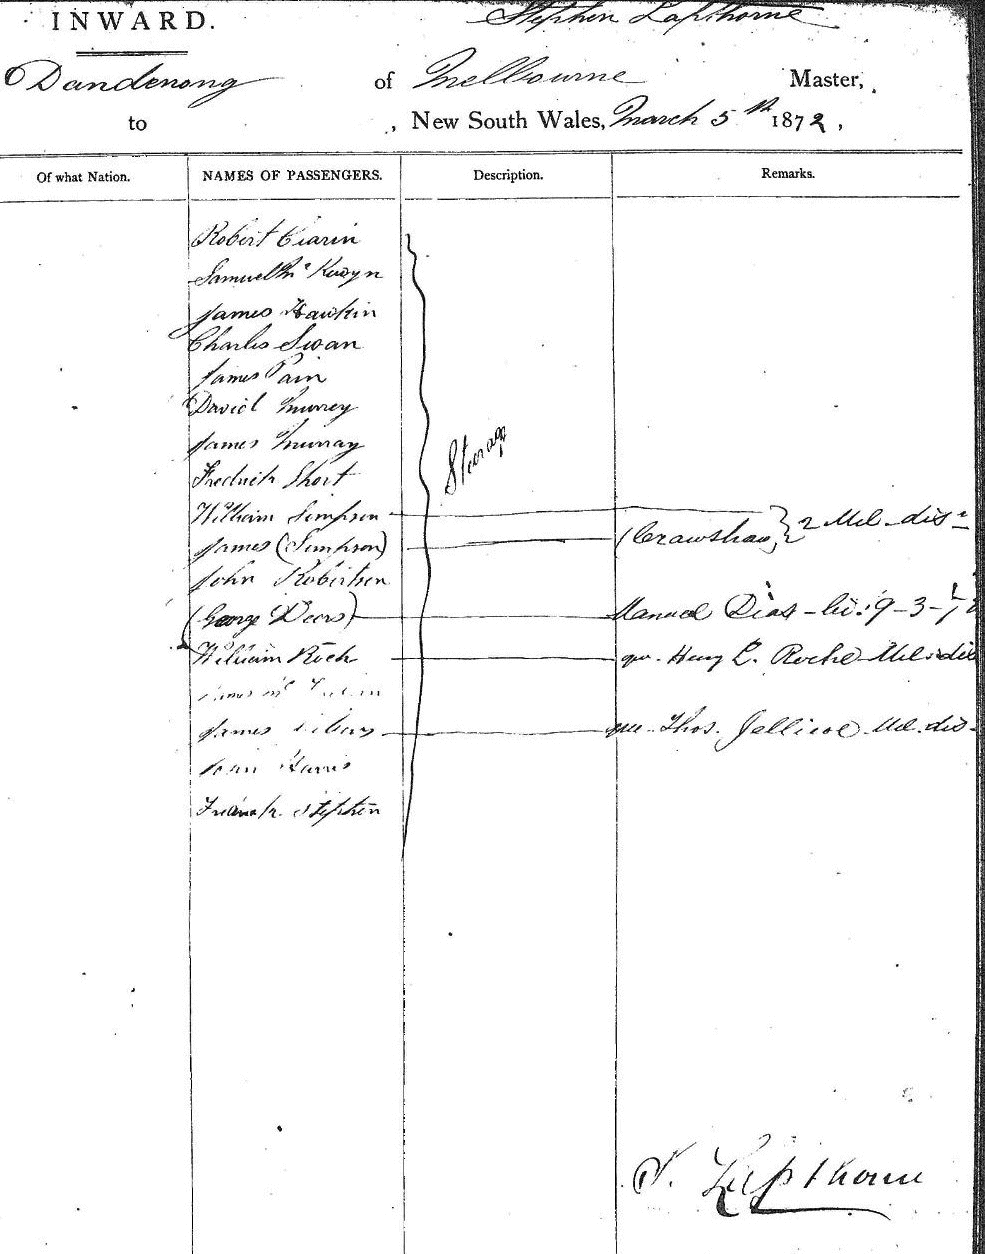 INWARD.
Stephen Lapthorne
Dandenong of Melbourne Master,
to , New South Wales, March 5th 1872,
Of what Nation. NAMES OF PASSENGERS. Description. Remarks.
Robert
Samuel Mc
James Hawkin
Charles Swan
James Pain
David Murrey
James Murray
Fredrick Short
Steerage
William Simpson } 2 Mel. dis
James (Simpson) (Crawshaw,
John Robertson
(George Deers) Manuel Dias 9-3-72
William Roch Hury L. Roche Mel. dis
James
James Thos. Jellicoe Mel. dis
Harris
Frank Stephen
S. Lapthorne